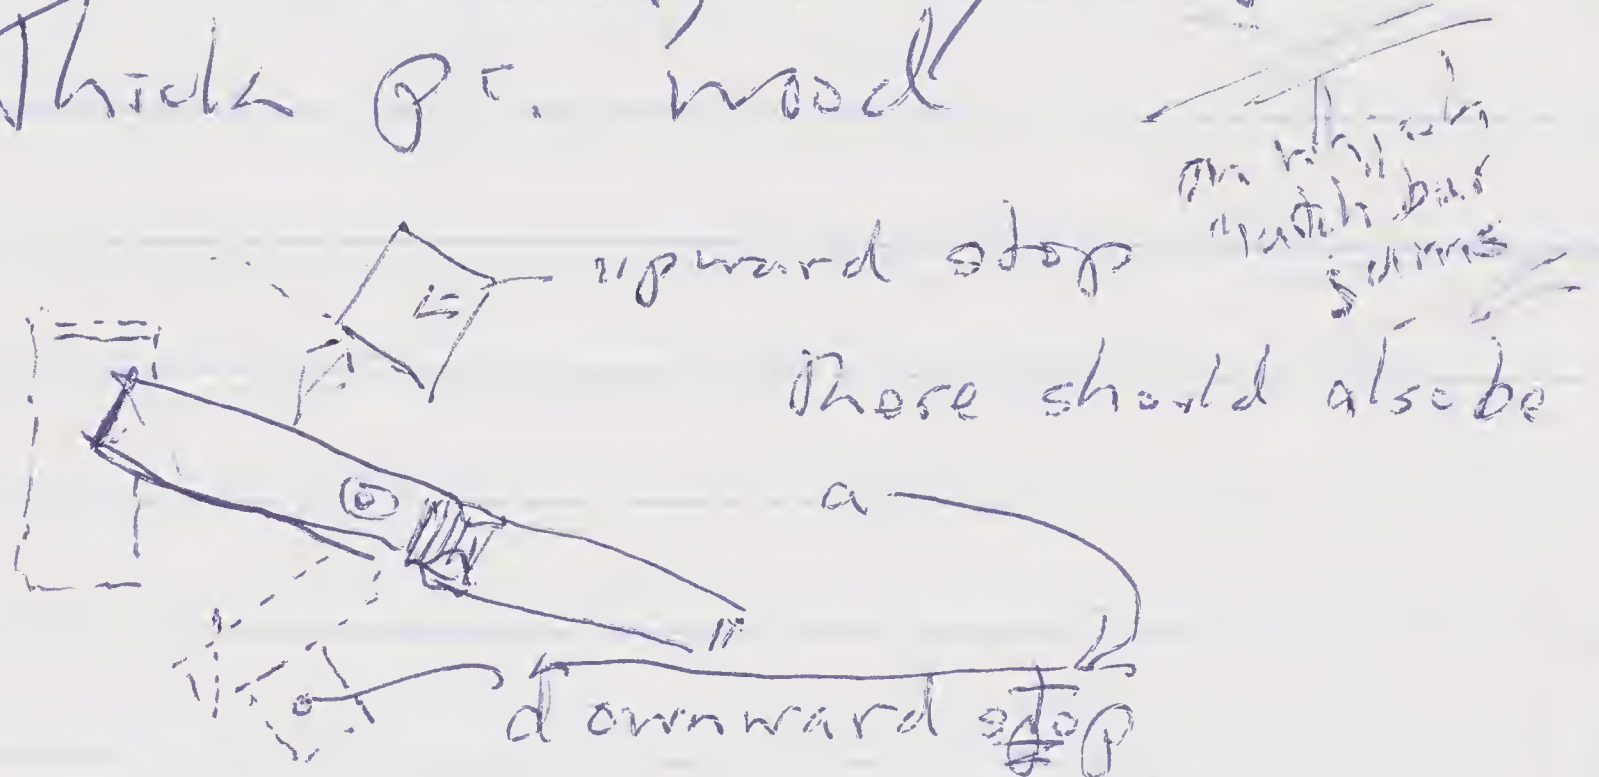 Thick pc. wood
on which
latch bar
jams
upward stop
There should also be
a
downward stop